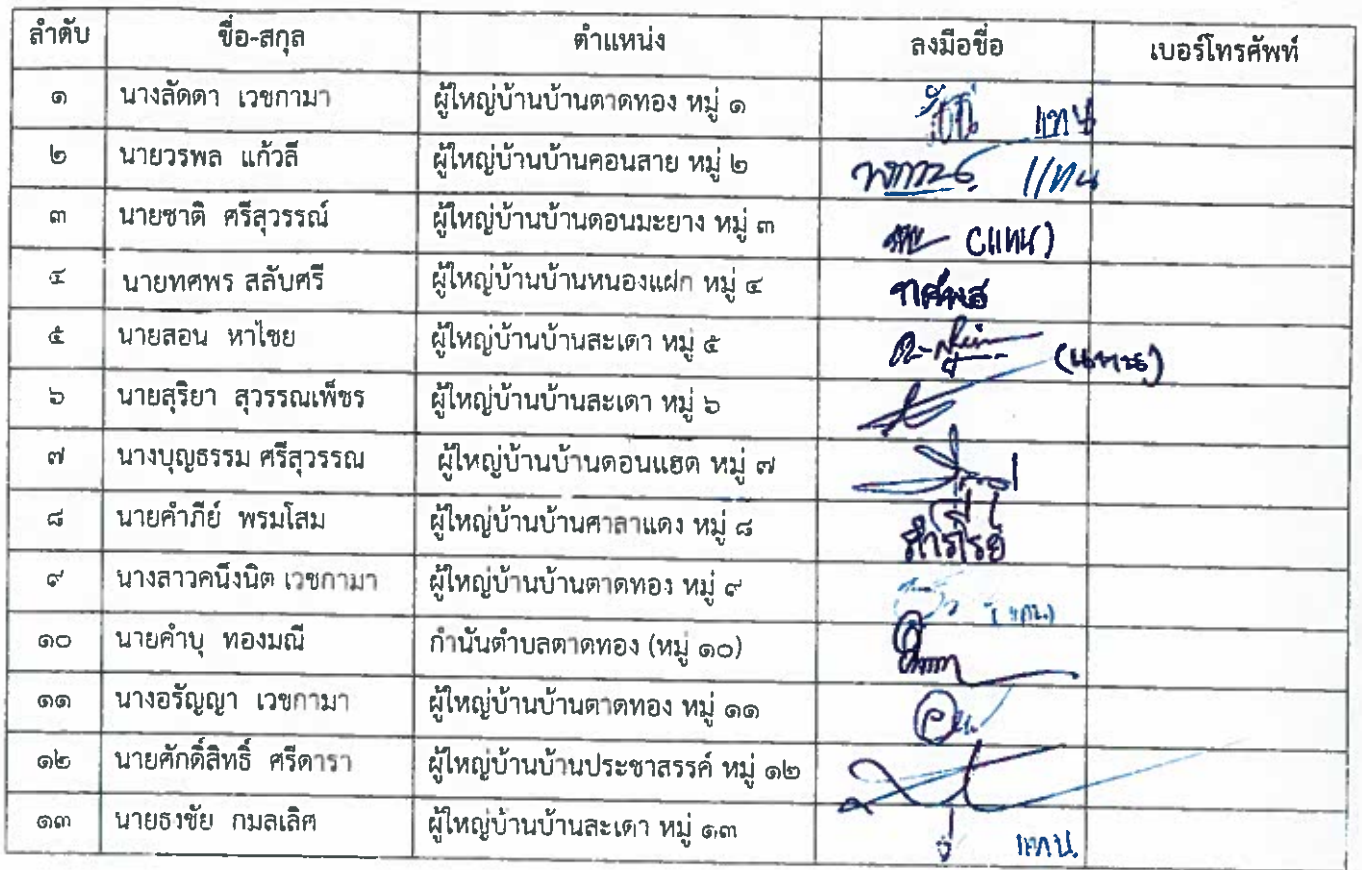 ลำดับ ชื่อ-สกุล ตำแหน่ง ลงมือชื่อ เบอร์โทรศัพท์
๑ นางลัดดา เวชกามา ผู้ใหญ่บ้านบ้านตาดทอง หมู่ ๑ แทน
๒ นายวรพล แก้วลี ผู้ใหญ่บ้านบ้านคอนสาย หมู่ ๒ แทน
๓ นายชาติ ศรีสุวรรณ์ ผู้ใหญ่บ้านบ้านดอนมะยาง หมู่ ๓ (แทน)
๔ นายทศพร สลับศรี ผู้ใหญ่บ้านบ้านหนองแฝก หมู่ ๔ ทศพร
๕ นายสอน หาไชย ผู้ใหญ่บ้านบ้านสะเดา หมู่ ๕ (แทน)
๖ นายสุริยา สุวรรณเพ็ชร ผู้ใหญ่บ้านบ้านสะเดา หมู่ ๖
๗ นางบุญธรรม ศรีสุวรรณ ผู้ใหญ่บ้านบ้านดอนแฮด หมู่ ๗
๘ นายคำภีย์ พรมโสม ผู้ใหญ่บ้านบ้านศาลาแดง หมู่ ๘
๙ นางสาวคนึงนิต เวชกามา ผู้ใหญ่บ้านบ้านตาดทอง หมู่ ๙ (แทน)
๑๐ นายคำบุ ทองมณี กำนันตำบลตาดทอง (หมู่ ๑๐)
๑๑ นางอรัญญา เวชกามา ผู้ใหญ่บ้านบ้านตาดทอง หมู่ ๑๑
๑๒ นายศักดิ์สิทธิ์ ศรีดารา ผู้ใหญ่บ้านบ้านประชาสรรค์ หมู่ ๑๒
๑๓ นายธงชัย กมลเลิศ ผู้ใหญ่บ้านบ้านสะเดา หมู่ ๑๓ แทน